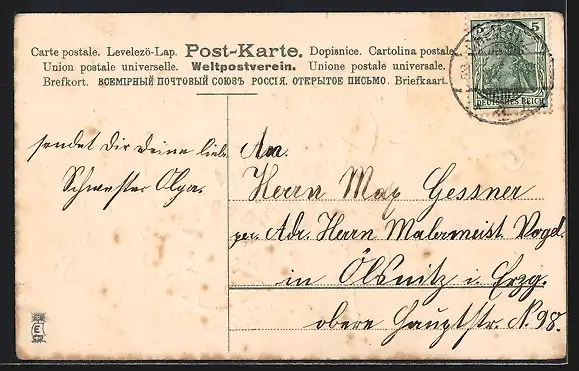 Carte postale. Levelezö-Lap. Post-Karte. Dopisnice. Cartolina postale.
Union postale universelle. Weltpostverein. Unione postale universale.
Brefkort. ВСЕМІРНЫЙ ПОЧТОВЫЙ СОЮЗЪ РОССІЯ. ОТКРЫТОЕ ПИСЬМО. Briefkaart.
5
DEUTSCHES REICH
sendet Dir Deine liebe
Schwester Olga.
An.
Herrn Max Gessner
per. Adr. Herrn Malermeist. Vogel.
in Ölsnitz i. Erzg.
obere Hauptstr. N. 98.
E